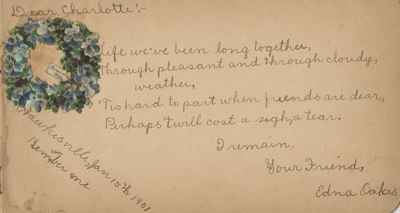 Dear Charlotte:-
Life we've been long together,
Through pleasant and through cloudy,
weather,
'Tis hard to part when friends are dear,
Perhaps 'twill cost a sigh, a tear.
I remain,
Your Friend,
Edna Oakes
Jan 10th, 1901
Remember me